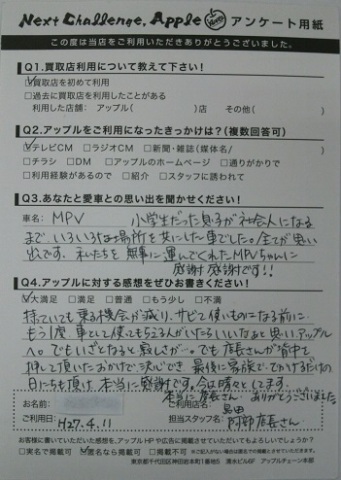 Next Challenge, Apple アンケート用紙
この度は当店をご利用いただきありがとうございました。
Q1.買取店利用について教えて下さい!
☑買取店を初めて利用
□過去に買取店を利用したことがある
利用した店舗: アップル( )店 その他( )
Q2.アップルをご利用になったきっかけは?(複数回答可)
☑テレビCM □ラジオCM □新聞・雑誌(媒体名/ )
□チラシ □DM □アップルのホームページ □通りがかりで
□利用経験があるので □紹介 □スタッフに誘われて
Q3.あなたと愛車との思い出を聞かせください!
車名: MPV 小学生だった息子が社会人になる
まで、いろいろな場所を共にした車でした。全てが思い
出です。私たちを無事に運んでくれたMPVちゃんに
感謝感謝です!!
Q4.アップルに対する感想をぜひお書きください!
☑大満足 □満足 □普通 □もう少し □不満
持っていても乗る機会が減り、サビて使いものになる前に
もう1度車として使ってもらえる人がいたらいいなあと思いアップル
へ。でもいざとなると寂しさが…。でも店長さんが背中を
押して頂いたおかげで決心でき、最後に家族ででかけるだけの
日にちも頂け、本当に感謝です。今は晴々としてます。
本当に店長さん、ありがとうございました。
お名前: ご利用店名:
ご利用日: H27.4.11 担当スタッフ名: 阿部店長さん
お客様に書いていただいた感想を、アップルHPや広告に掲載させていただいてもよろしいでしょうか?
□実名で掲載可 ☑匿名なら掲載可 □掲載不可
東京都千代田区神田岩本町1番地5 清水ビル6F アップルチェーン本部